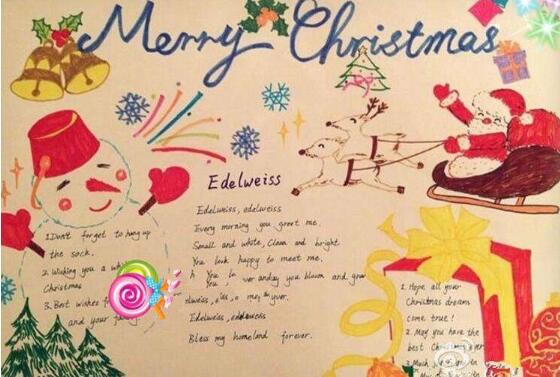 Merry Christmas
Edelweiss
1. Don't forget to hang up
the sock.
2. Wishing you a whi
Christmas
3. Best wishes f
and your fam
Edelweiss, edelweiss
Every morning you greet me.
Small and white, Clean and bright
You look happy to meet me.
you bloom and grow
Edelweiss, edelweiss
Bless my homeland forever.
1. Hope all your
Christmas dreams
come true!
2. May you have the
best Christmas ever
3. Much